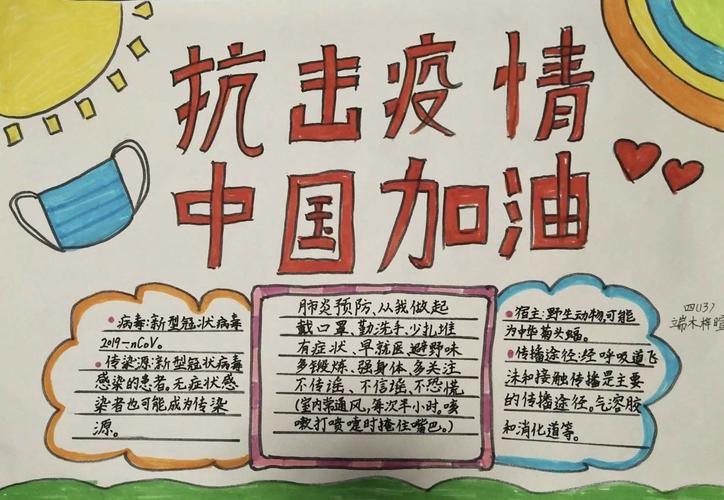 抗击疫情
中国加油
•病毒:新型冠状病毒
2019-nCoV。
•传染源:新型冠状病毒
感染的患者。无症状感
染者也可能成为传染
源。
肺炎预防、从我做起
戴口罩、勤洗手、少扎堆
有症状、早就医、避野味
多锻炼、强身体、多关注
不传谣、不信谣、不恐慌
(室内常通风,每次半小时。咳
嗽打喷嚏时掩住嘴巴。)
•宿主:野生动物,可能
为中华菊头蝠。
•传播途径:经呼吸道飞
沫和接触传播是主要
的传播途径。气溶胶
和消化道等。
四(13)
端木梓暄